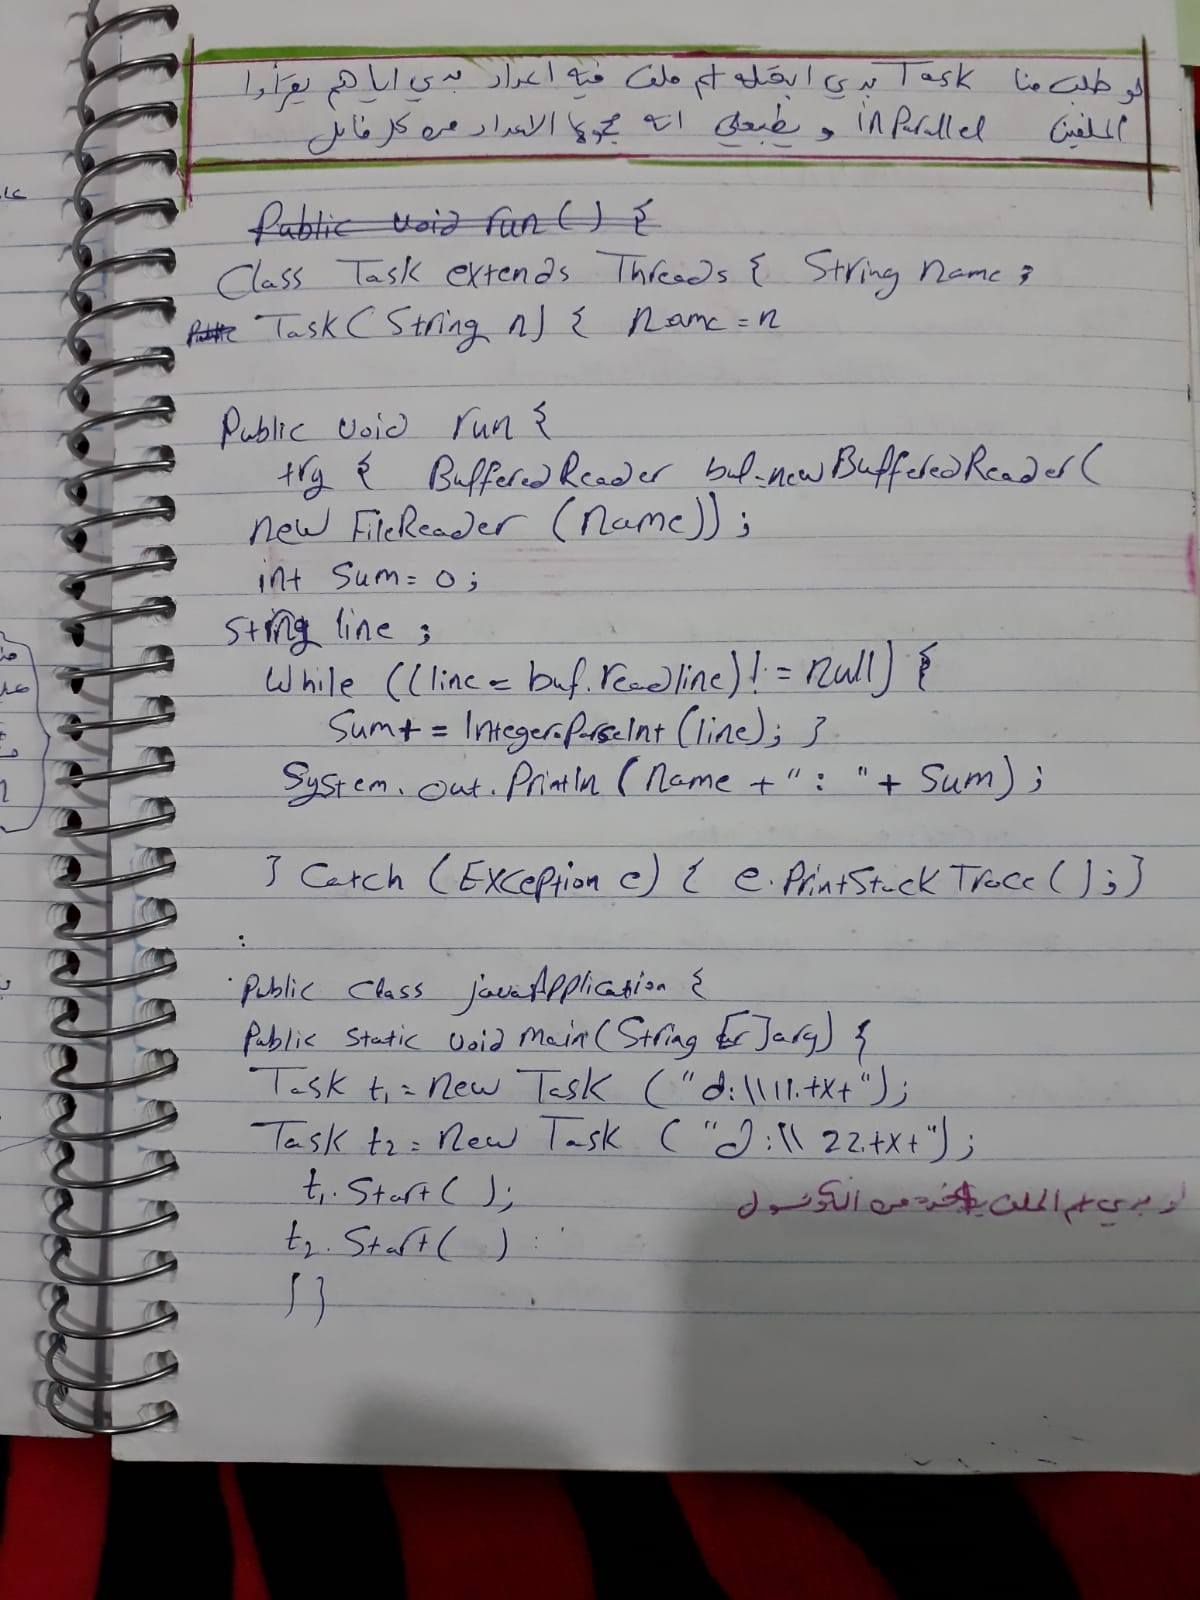 لو طلب منا Task بدي ابعتله اسم ملف فيه اعداد بدي اياهم يقرأوا
الملفين in Parallel و يطبعلي انه مجموع الاعداد من كل فايل
Public void run() {
Class Task extends Threads { String name;
Task(String n) { name = n
Public void run {
try { BufferedReader buf = new BufferedReader(
new FileReader (name));
int Sum = 0;
String line ;
While ((line = buf.readline) != null) {
Sum += Integer.ParseInt (line); }
System.out.Println (name + " : " + Sum);
} Catch (Exception e) { e.PrintStackTrace();}
:
Public Class javaApplication {
Public static void main(String []arg) {
Task t1 = new Task ("d:\\11.txt");
Task t2 = new Task ("d:\\22.txt");
t1.Start();
لو بدي اسم الملف ياخده من الكونسول
t2.Start( )
} }